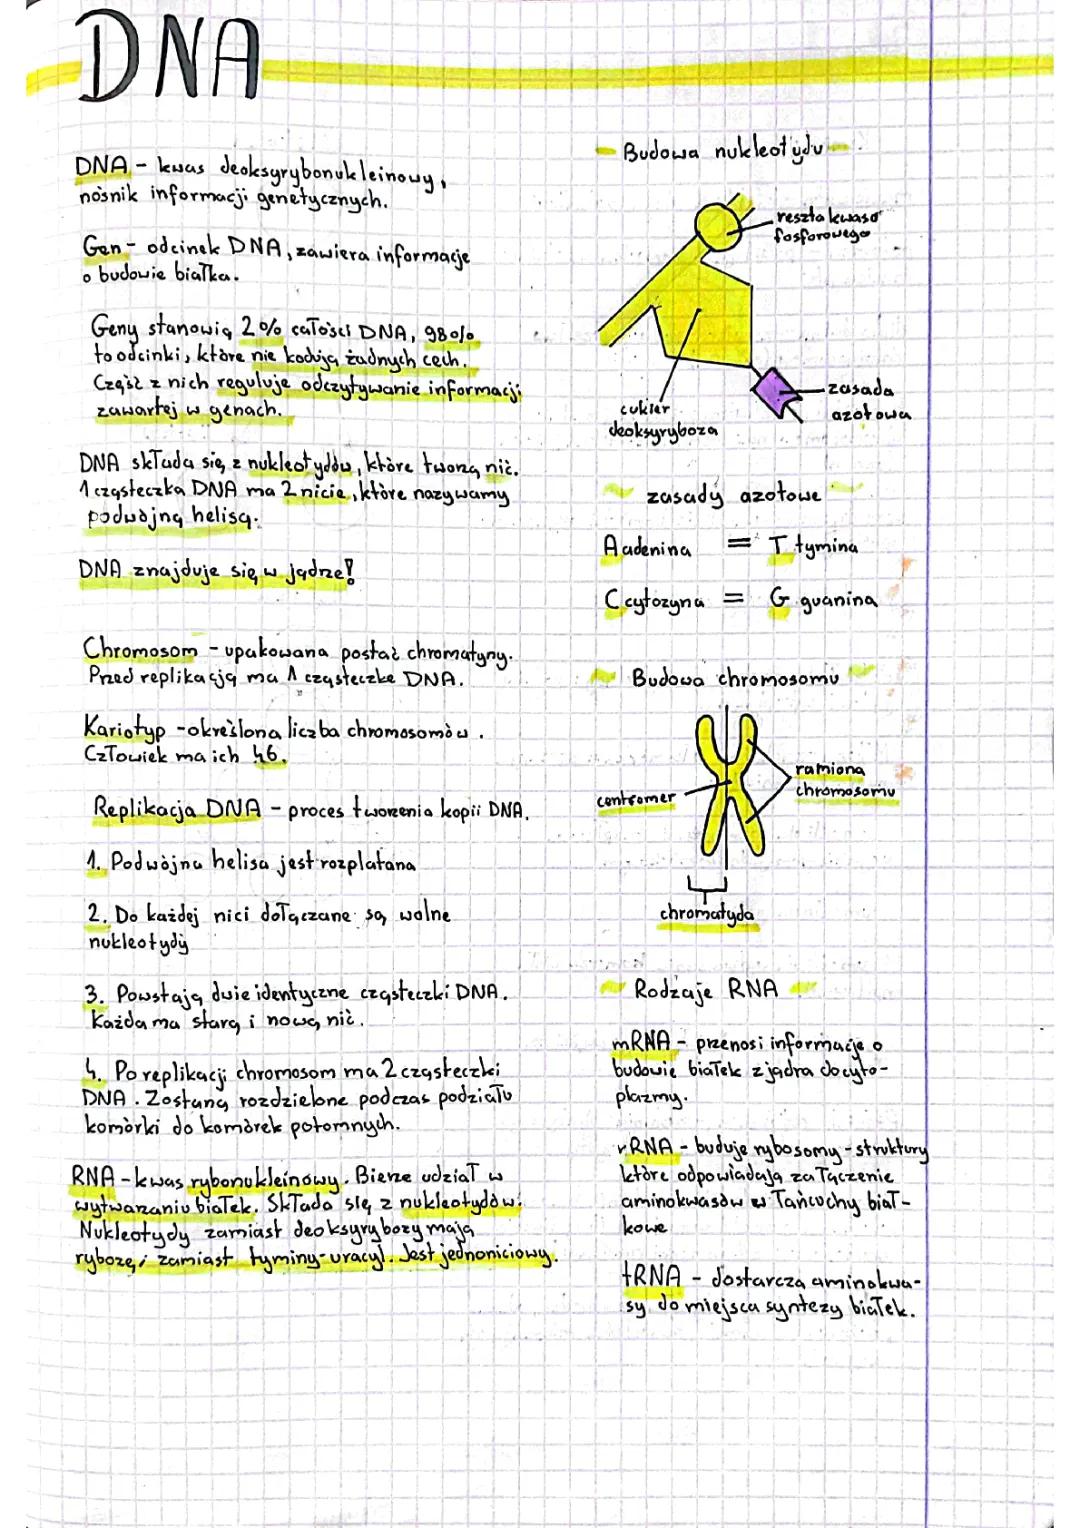 DNA
DNA - kwas deoksyrybonukleinowy,
nośnik informacji genetycznych.
Gen - odcinek DNA, zawiera informacje
o budowie białka.
Geny stanowią 2% całości DNA, 98%
to odcinki, które nie kodują żadnych cech.
Część z nich reguluje odczytywanie informacji
zawartej w genach.
DNA składa się z nukleotydów, które tworzą nić.
1 cząsteczka DNA ma 2 nicie, które nazywamy
podwójną helisą.
DNA znajduje się w jądrze!
Chromosom - upakowana postać chromatyny.
Przed replikacją ma 1 cząsteczke DNA.
Kariotyp - określona liczba chromosomów.
Człowiek ma ich 46.
Replikacja DNA - proces tworzenia kopii DNA.
1. Podwójna helisa jest rozplatana
2. Do każdej nici dołączane są wolne
nukleotydy
3. Powstają dwie identyczne cząsteczki DNA.
Każda ma starą i nową nić.
4. Po replikacji chromosom ma 2 cząsteczki
DNA. Zostaną rozdzielone podczas podziału
komórki do komórek potomnych.
RNA - kwas rybonukleinowy. Bierze udział w
wytwarzaniu białek. Składa się z nukleotydów.
Nukleotydy zamiast deoksyrybozy mają
rybozę, i zamiast tyminy - uracyl. Jest jednoniciowy.
Budowa nukleotydu
reszta kwaso
fosforowego
cukier
deoksyryboza
zasada
azotowa
zasady azotowe
A adenina = T tymina
C cytozyna = G guanina
Budowa chromosomu
centromer
ramiona
chromosomu
chromatyda
Rodzaje RNA
mRNA - przenosi informacje o
budowie białek z jądra do cyto-
plazmy.
rRNA - buduje rybosomy - struktury
które odpowiadają za łączenie
aminokwasów w łańcuchy biał-
kowe
tRNA - dostarcza aminokwa-
sy do miejsca syntezy białek.